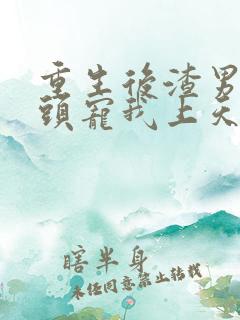 重生後渣男
頭寵我上天
瞎半身
未經同意禁止轉載